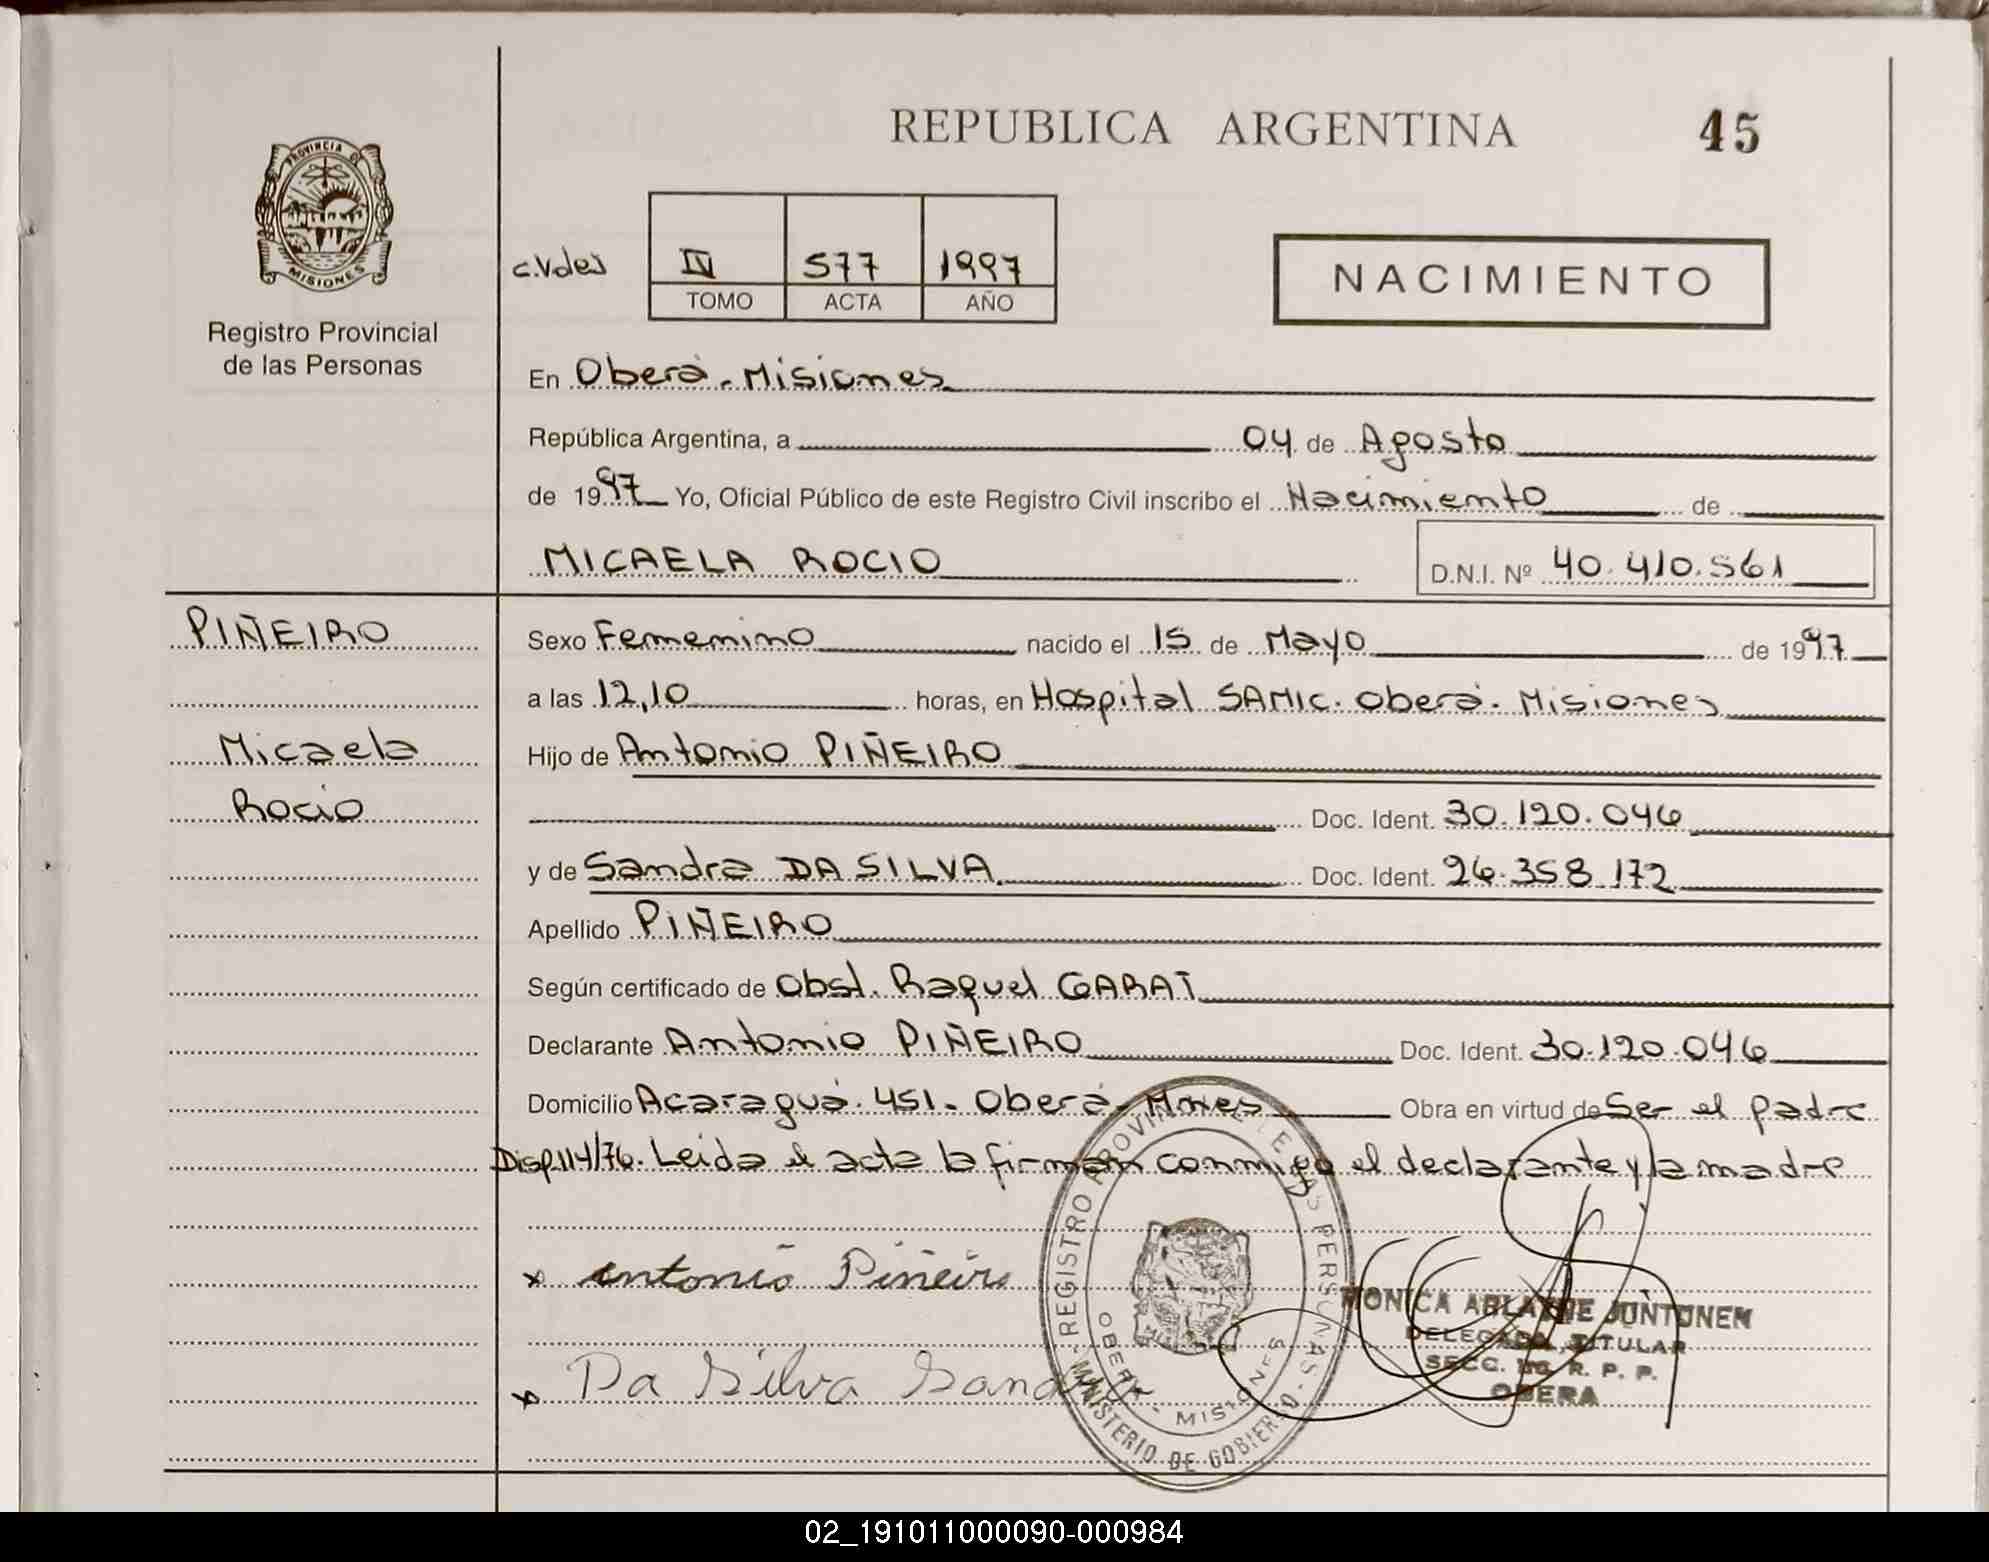 REPUBLICA ARGENTINA
45
PROVINCIA DE
MISIONES
Registro Provincial
de las Personas
c.Vdes
IV 577 1997
TOMO ACTA AÑO
NACIMIENTO
En Oberá. Misiones
República Argentina, a 04 de Agosto
de 1997 Yo, Oficial Público de este Registro Civil inscribo el Nacimiento de
MICAELA ROCIO D.N.I. Nº 40.410.561
PIÑEIRO
Micaela
Rocio
Sexo Femenino nacido el 15 de Mayo de 1997
a las 12,10 horas, en Hospital SAMIC. Oberá. Misiones
Hijo de Antonio PIÑEIRO
Doc. Ident. 30.120.046
y de Sandra DA SILVA. Doc. Ident. 26.358.172
Apellido PIÑEIRO
Según certificado de Obst. Raquel GARAT
Declarante Antonio PIÑEIRO Doc. Ident. 30.120.046
Domicilio Acaraguá. 451. Oberá. Mnes Obra en virtud de Ser el padre
Disp.114/76. Leida el acta la firman conmigo el declarante y la madre
x Antonio Piñeiro
x Da Silva Sandra
REGISTRO PROVINCIAL DE LAS PERSONAS
MINISTERIO DE GOBIERNO
OBERA - MISIONES
MONICA JUNTONEN
DELEGADA TITULAR
SECC. R. P. P.
OBERA
02_191011000090-000984